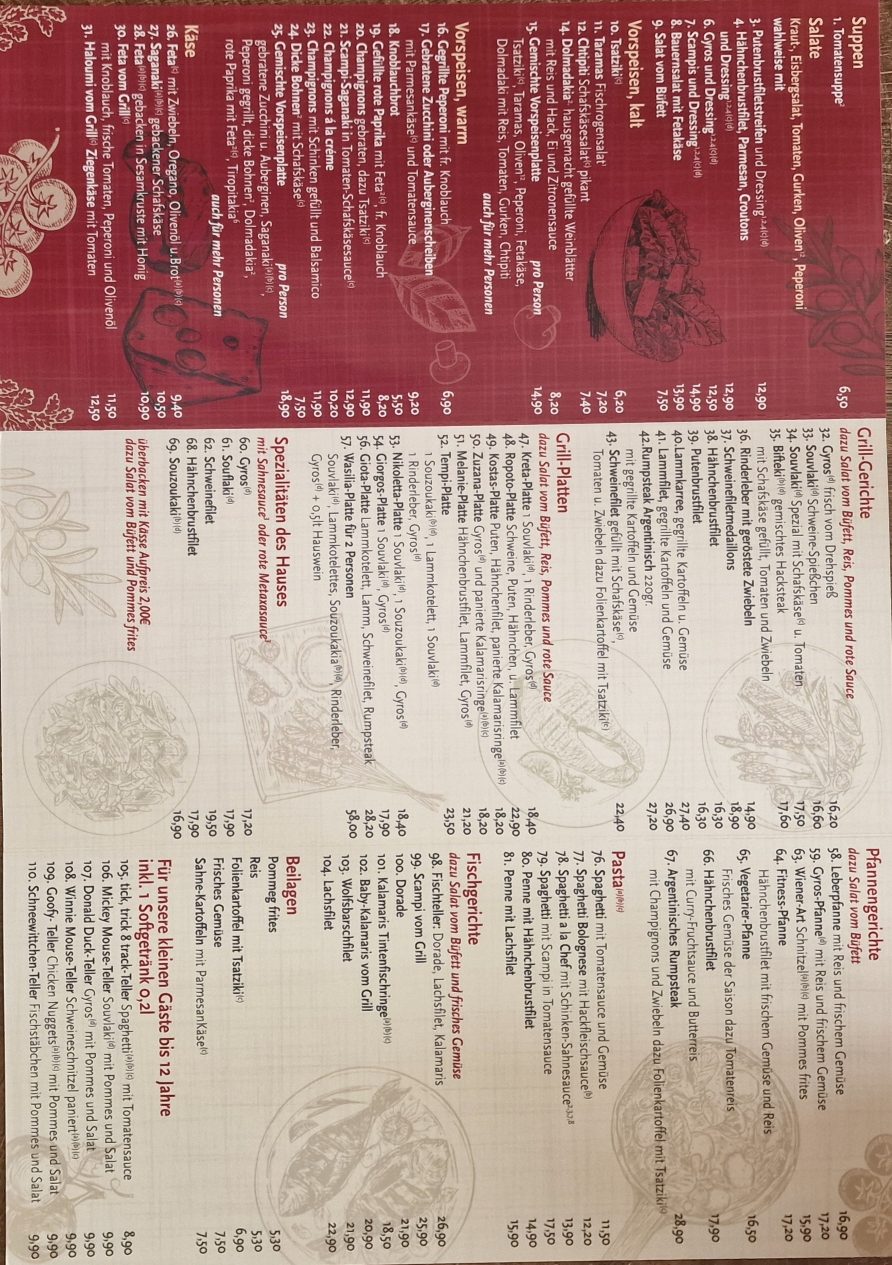 Suppen
1. Tomatensuppe 6,50
Salate
Kraut-, Eisbergsalat, Tomaten, Gurken, Oliven, Peperoni
wahlweise mit
3. Putenbrustfiletstreifen und Dressing 12,90
4. Hähnchenbrustfilet, Parmesan, Croutons
und Dressing 12,90
6. Gyros und Dressing 12,50
7. Scampis und Dressing 14,90
8. Bauernsalat mit Fetakäse 13,90
9. Salat vom Büfett 7,50
Vorspeisen, kalt
10. Tsatziki 6,20
11. Taramas Fischrogensalat 7,20
12. Chtipiti Schafskäsesalat pikant 7,40
14. Dolmadakia hausgemacht gefüllte Weinblätter
mit Reis und Hack, Ei und Zitronensauce 8,20
15. Gemischte Vorspeisenplatte pro Person 14,90
Tsatziki, Taramas, Oliven, Peperoni, Fetakäse,
Dolmadaki mit Reis, Tomaten, Gurken, Chtipiti
auch für mehr Personen
Vorspeisen, warm
16. Gegrillte Peperoni mit fr. Knoblauch 6,90
17. Gebratene Zucchini oder Auberginenscheiben
mit Parmesankäse und Tomaten 9,20
18. Knoblauchbrot 5,50
19. Gefüllte rote Paprika mit Feta, fr. Knoblauch 8,20
20. Champignons gebraten, dazu Tsatziki 11,90
21. Scampi-Saganaki in Tomaten-Schafskäsesauce 12,90
22. Champignons á la créme 10,20
23. Champignons mit Schinken gefüllt und Balsamico 11,90
24. Dicke Bohnen mit Schafskäse 7,50
25. Gemischte Vorspeisenplatte pro Person 18,90
gebratene Zucchini u. Auberginen, Saganaki,
Peperoni gegrillt, dicke Bohnen, Dolmadakia,
rote Paprika mit Feta, Tiropitakia
auch für mehr Personen
Käse
26. Feta mit Zwiebeln, Oregano, Olivenöl u.Brot 9,40
27. Saganaki gebackener Schafskäse 10,50
28. Feta gebacken in Sesamkruste mit Honig 10,90
30. Feta vom Grill
mit Knoblauch, frische Tomaten, Peperoni und Olivenöl 11,50
31. Haloumi vom Grill Ziegenkäse mit Tomaten 12,50
Grill-Gerichte
dazu Salat vom Büfett, Reis, Pommes und rote Sauce
32. Gyros frisch vom Drehspieß 16,20
33. Souvlaki Schweine-Spießchen 16,60
34. Souvlaki Spezial mit Schafskäse u. Tomaten 17,50
35. Bifteki gemischtes Hacksteak
mit Schafskäse gefüllt, Tomaten und Zwiebeln 17,60
36. Rinderleber mit geröstete Zwiebeln 14,90
37. Schweinefiletmedaillons 18,90
38. Hähnchenbrustfilet 16,30
39. Putenbrustfilet 16,30
40.Lammkarree, gegrillte Kartoffeln u. Gemüse 27,40
41. Lammfilet, gegrillte Kartoffeln und Gemüse 26,90
42.Rumpsteak Argentinisch 220gr.
mit gegrillte Kartoffeln und Gemüse 27,20
43. Schweinefilet gefüllt mit Schafskäse,
Tomaten u. Zwiebeln dazu Folienkartoffel mit Tsatziki 22,40
Grill-Platten
dazu Salat vom Büfett, Reis, Pommes und rote Sauce
47. Kreta-Platte 1 Souvlaki, 1 Rinderleber, Gyros 18,40
48. Ropoto-Platte Schweine, Puten, Hähnchen, u. Lammfilet 22,90
49. Kostas-Platte Puten, Hähnchenfilet, panierte Kalamarisringe 18,20
50. Zuzana-Platte Gyros und panierte Kalamarisringe 18,20
51. Melanie-Platte Hähnchenbrustfilet, Lammfilet, Gyros 21,20
52. Tempi-Platte 23,50
1 Souzoukaki, 1 Lammkotelett, 1 Souvlaki
1 Rinderleber, Gyros
53. Nikoletta-Platte 1 Souvlaki, 1 Souzoukaki, Gyros 18,40
54. Giorgos-Platte 1 Souvlaki, Gyros 17,90
56. Giota-Platte Lammkotelett, Lamm, Schweinefilet, Rumpsteak 28,20
57. Wasilia-Platte für 2 Personen 58,00
Souvlaki, Lammkotelettes, Souzoukakia, Rinderleber,
Gyros + 0,5lt Hauswein
Spezialitäten des Hauses
mit Sahnesauce oder rote Metaxasauce
60. Gyros 17,20
61. Souflaki 17,90
62. Schweinefilet 19,50
68. Hähnchenbrustfilet 17,90
69. Souzoukaki 16,90
überbacken mit Kässe Aufpreis 2,00€
dazu Salat vom Büfett und Pommes frites
Pfannengerichte
dazu Salat vom Büfett
58. Leberpfanne mit Reis und frischem Gemüse 16,90
59. Gyros-Pfanne mit Reis und frischem Gemüse 17,20
63. Wiener-Art Schnitzel mit Pommes frites 15,90
64. Fitness-Pfanne 17,20
Hähnchenbrustfilet mit frischem Gemüse und Reis
65. Vegetarier-Pfanne 16,50
Frisches Gemüse der Saison dazu Tomatenreis
66. Hähnchenbrustfilet 17,90
mit Curry-Fruchtsauce und Butterreis
67. Argentinisches Rumpsteak 28,90
mit Champignons und Zwiebeln dazu Folienkartoffel mit Tsatziki
Pasta
76. Spaghetti mit Tomatensauce und Gemüse 11,50
77. Spaghetti Bolognese mit Hackfleischsauce 12,20
78. Spaghetti a la Chef mit Schinken-Sahnesauce 13,90
79. Spaghetti mit Scampi in Tomatensauce 17,50
80. Penne mit Hähnchenbrustfilet 14,90
81. Penne mit Lachsfilet 15,90
Fischgerichte
dazu Salat vom Büfett und frisches Gemüse
98. Fischteller: Dorade, Lachsfilet, Kalamaris 26,90
99. Scampi vom Grill 25,90
100. Dorade 21,90
101. Kalamaris Tintenfischringe 18,50
102. Baby-Kalamaris vom Grill 20,90
103. Wolfsbarschfilet 21,90
104. Lachsfilet 22,90
Beilagen
Pommeg frites 5,30
Reis 5,30
Folienkartoffel mit Tsatziki 6,90
Frisches Gemüse 7,50
Sahne-Kartoffeln mit ParmesanKäse 7,50
Für unsere kleinen Gäste bis 12 Jahre
inkl. 1 Softgetränk 0,2l
105. tick, trick & track-Teller Spaghetti mit Tomatensauce 8,90
106. Mickey Mouse-Teller Souvlaki mit Pommes und Salat 9,90
107. Donald Duck-Teller Gyros mit Pommes und Salat 9,90
108. Winnie Mouse-Teller Schweineschnitzel paniert 9,90
109. Goofy- Teller Chicken Nuggets mit Pommes und Salat 9,90
110. Schneewittchen-Teller Fischstäbchen mit Pommes und Salat 9,90